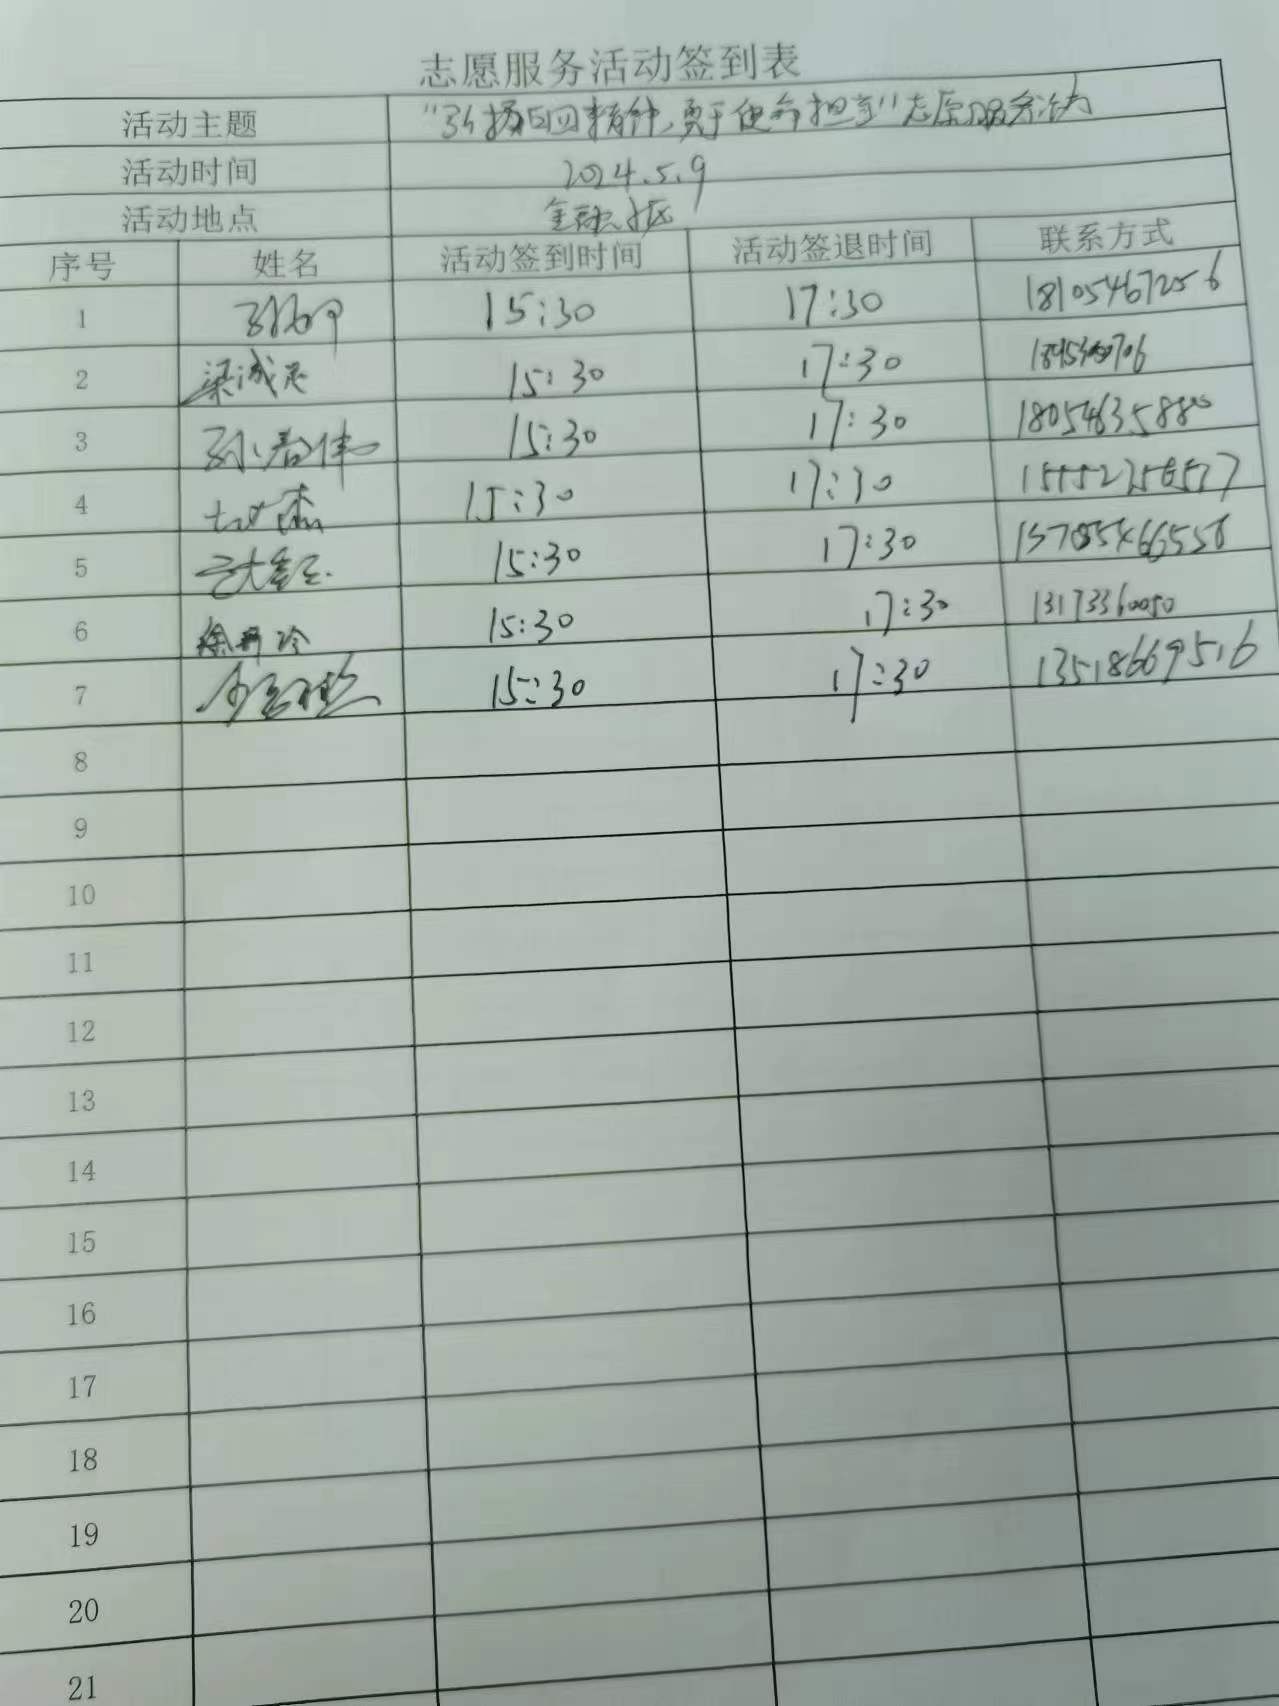 志愿服务活动签到表
活动主题 "弘扬五四精神,勇于使命担当"志愿服务活动
活动时间 2024.5.9
活动地点 金融
序号 姓名 活动签到时间 活动签退时间 联系方式
1 15:30 17:30 18105467256
2 梁诚志 15:30 17:30
3 孙春伟 15:30 17:30
4 15:30 17:30
5 15:30 17:30
6 徐丹玲 15:30 17:30 13173360050
7 15:30 17:30 13518669516
8
9
10
11
12
13
14
15
16
17
18
19
20
21